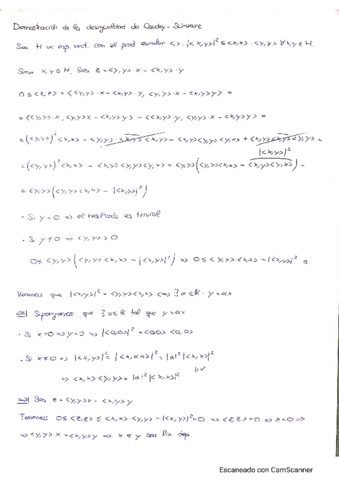 Demostración de la desigualdad de Cauchy - Schwarz
Sea H un esp. vect. con el prod. escalar <,>: |<x,y>|² ≤ <x,x> · <y,y> ∀x,y ∈ H.
Sean x, y ∈ H, Sea z = <y,y> · x - <x,y> · y
0 ≤ <z,z> = <<y,y> · x - <x,y> · y, <y,y> x - <x,y> y> =
= <<y,y> · x, <y,y> x - <x,y> y> - <<x,y> y, <y,y> · x - <x,y> y> =
= (<y,y>)² <x,x> - <y,y> <x,y> <x,y> - <x,y> <y,y> <y,x> + <x,y> <x,y> <y,y> =
= (<y,y>)² <x,x> - <x,y> <y,y> <y,x> = <y,y> (<y,y> <x,x> - <x,y> <y,x>) =
|<x,y>|²
= <y,y> (<y,y> <x,x> - |<x,y>|²)
· Si y = 0 ⇒ el resultado es trivial
· Si y ≠ 0 ⇒ <y,y> > 0
0 ≤ <y,y> (<y,y> <x,x> - |<x,y>|²) ⇒ 0 ≤ <y,y> <x,x> - |<x,y>|²
Veamos que |<x,y>|² = <y,y> <x,x> <=> ∃ α ∈ 𝕂 : y = αx
⇐| Supongamos que ∃ α ∈ 𝕂 tal que y = αx
· Si x = 0 ⇒ y = 0 ⇒ |<0,0>|² = <0,0> <0,0>
· Si x ≠ 0 ⇒ |<x,y>|² = |<x,αx>|² = |α|² |<x,x>|²
⇒ <x,x> <y,y> = |α|² |<x,x>|²
⇒| Sea z = <y,y> x - <x,y> y
Tenemos 0 ≤ <z,z> ≤ <x,x> <y,y> - |<x,y>|² = 0 ⇒ <z,z> = 0 ⇒ z = 0 ⇒
⇒ <y,y> · x = <x,y> y ⇒ x e y son lin. dep.
Escaneado con CamScanner